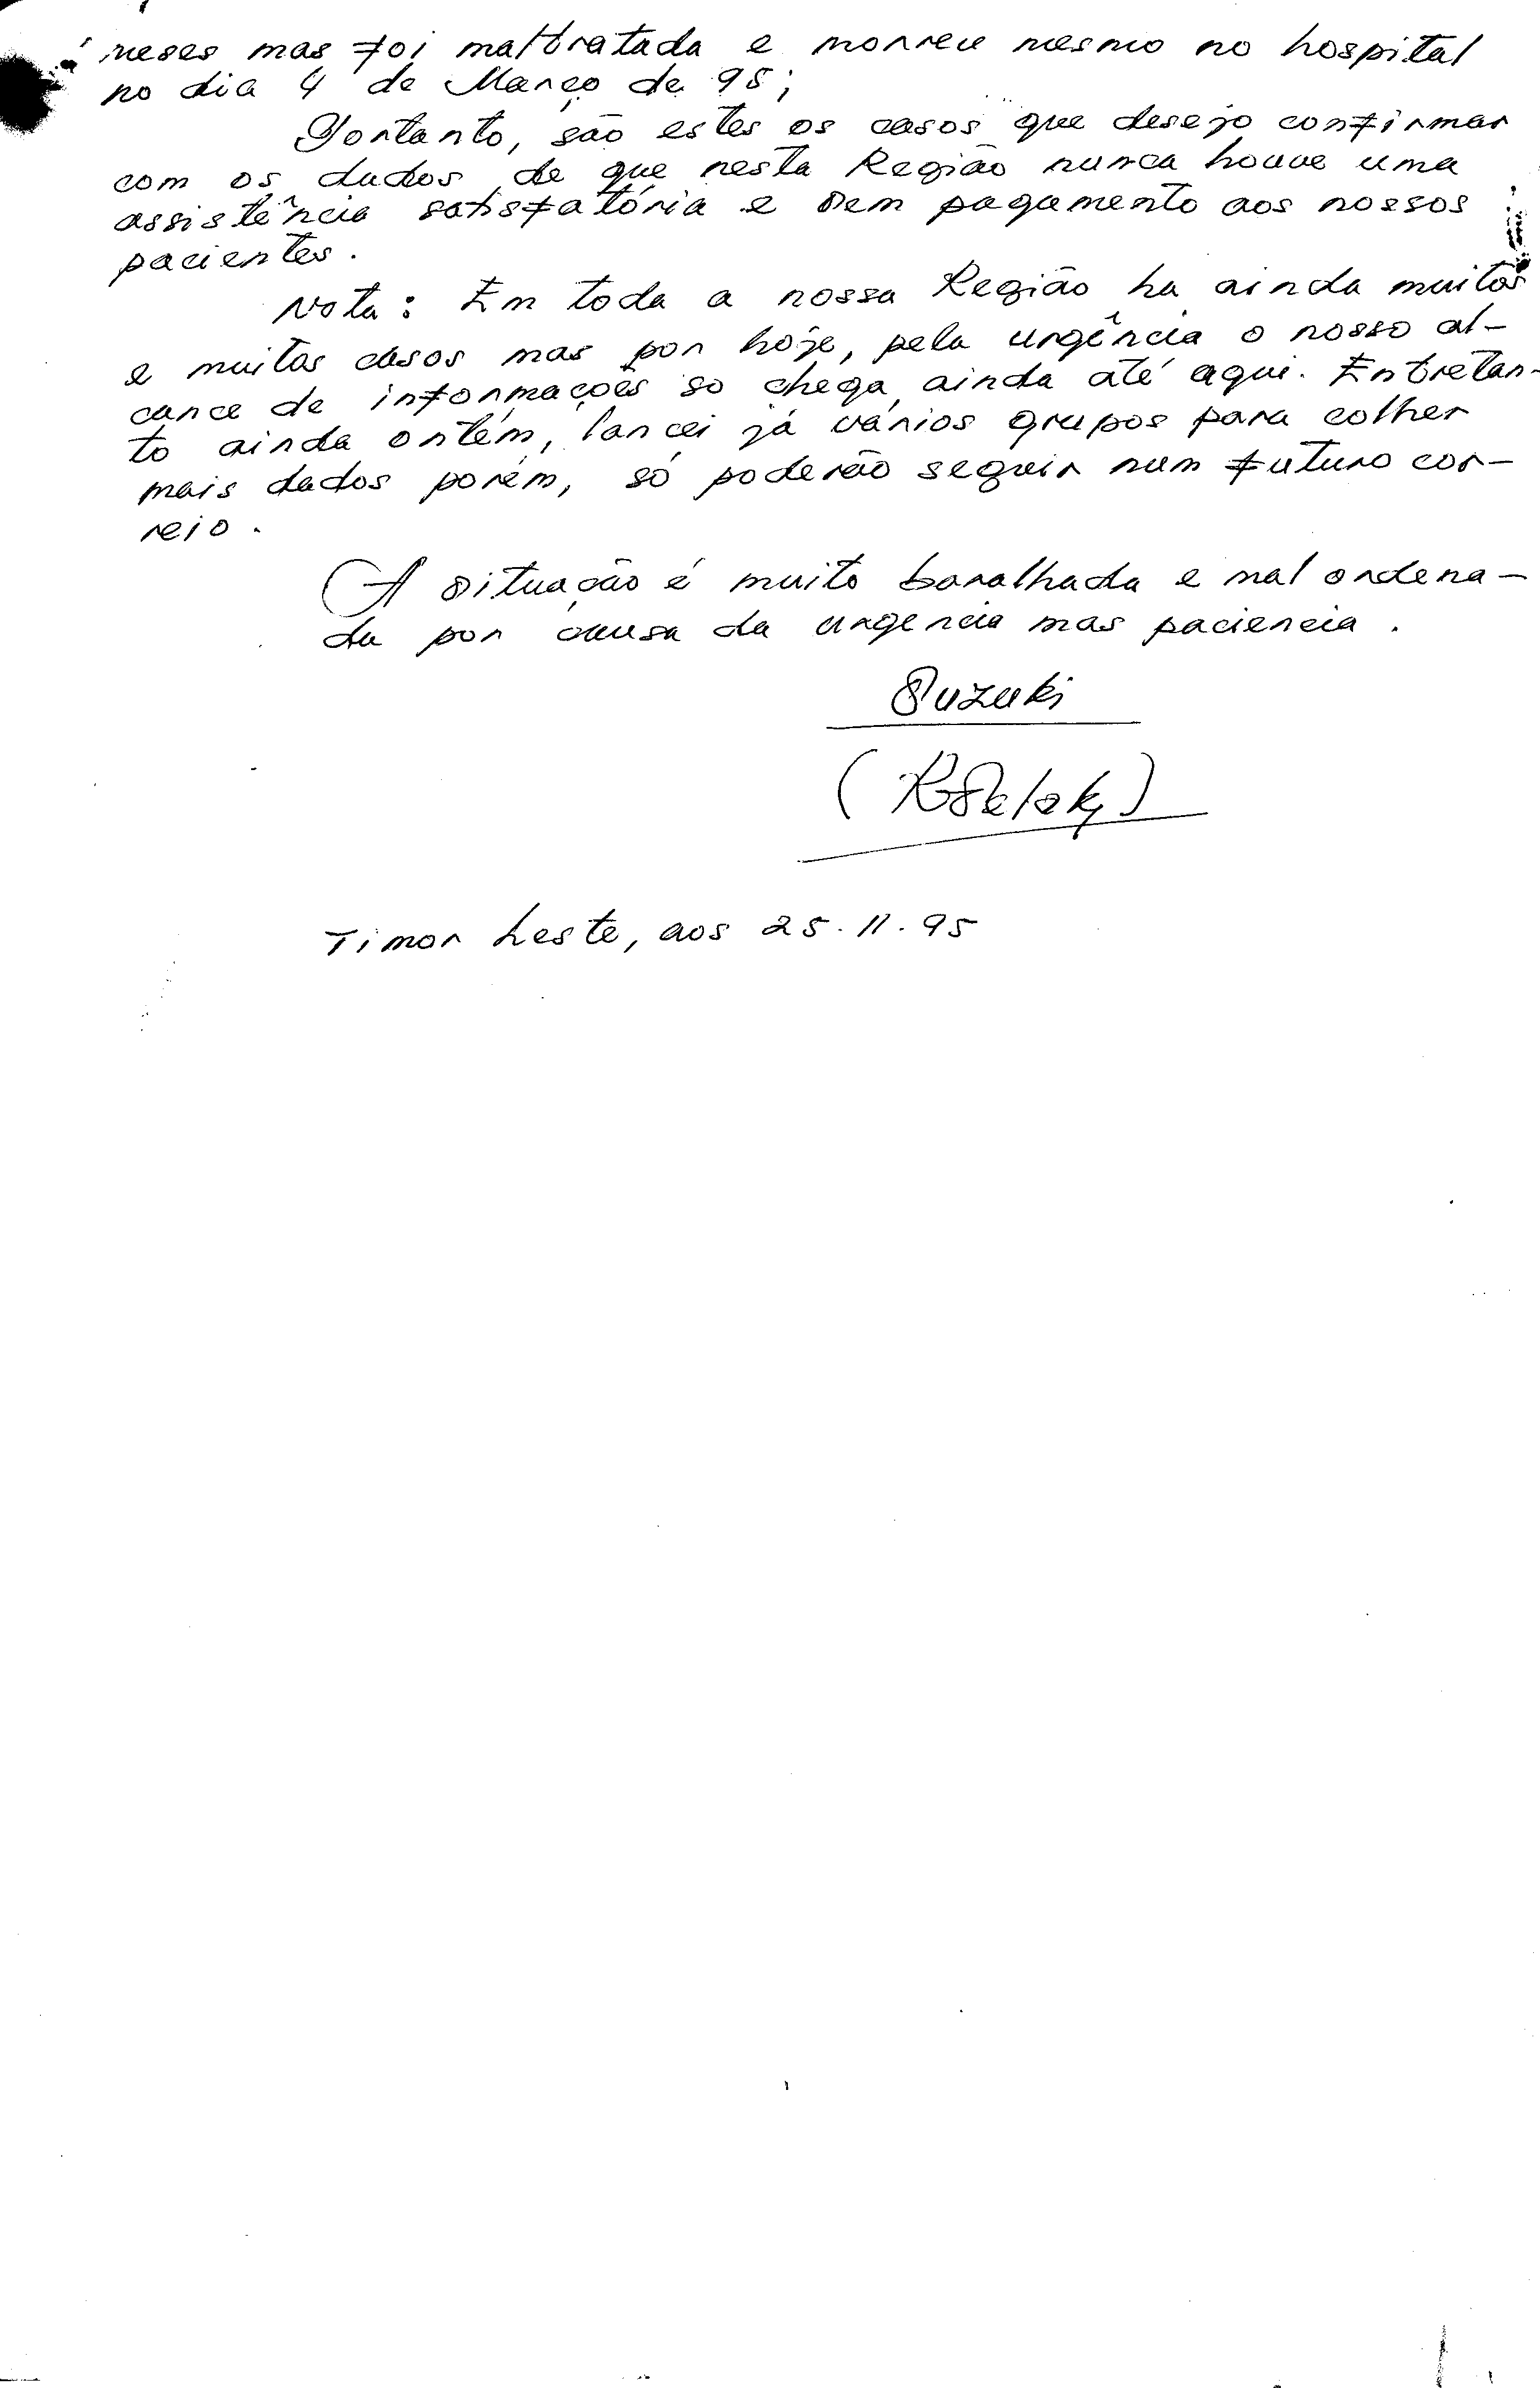 neses mas foi maltratada e morreu mesmo no hospital
no dia 4 de Março de 95;
Portanto, são estes os casos que desejo confirmar
com os dados de que nesta Região nunca houve uma
assistência satisfatória e sem pagamento aos nossos
pacientes.
Nota: Em toda a nossa Região ha ainda muitos
e muitos casos mas por hoje, pela urgência o nosso al-
cance de informações so chega ainda até aqui. Entretan-
to ainda ontém, lancei já vários grupos para colher
mais dados porém, só poderão seguir num futuro cor-
reio.
A situação é muito baralhada e mal ordena-
da por causa da urgencia mas paciencia.
Suzuki
Timor Leste, aos 25.11.95